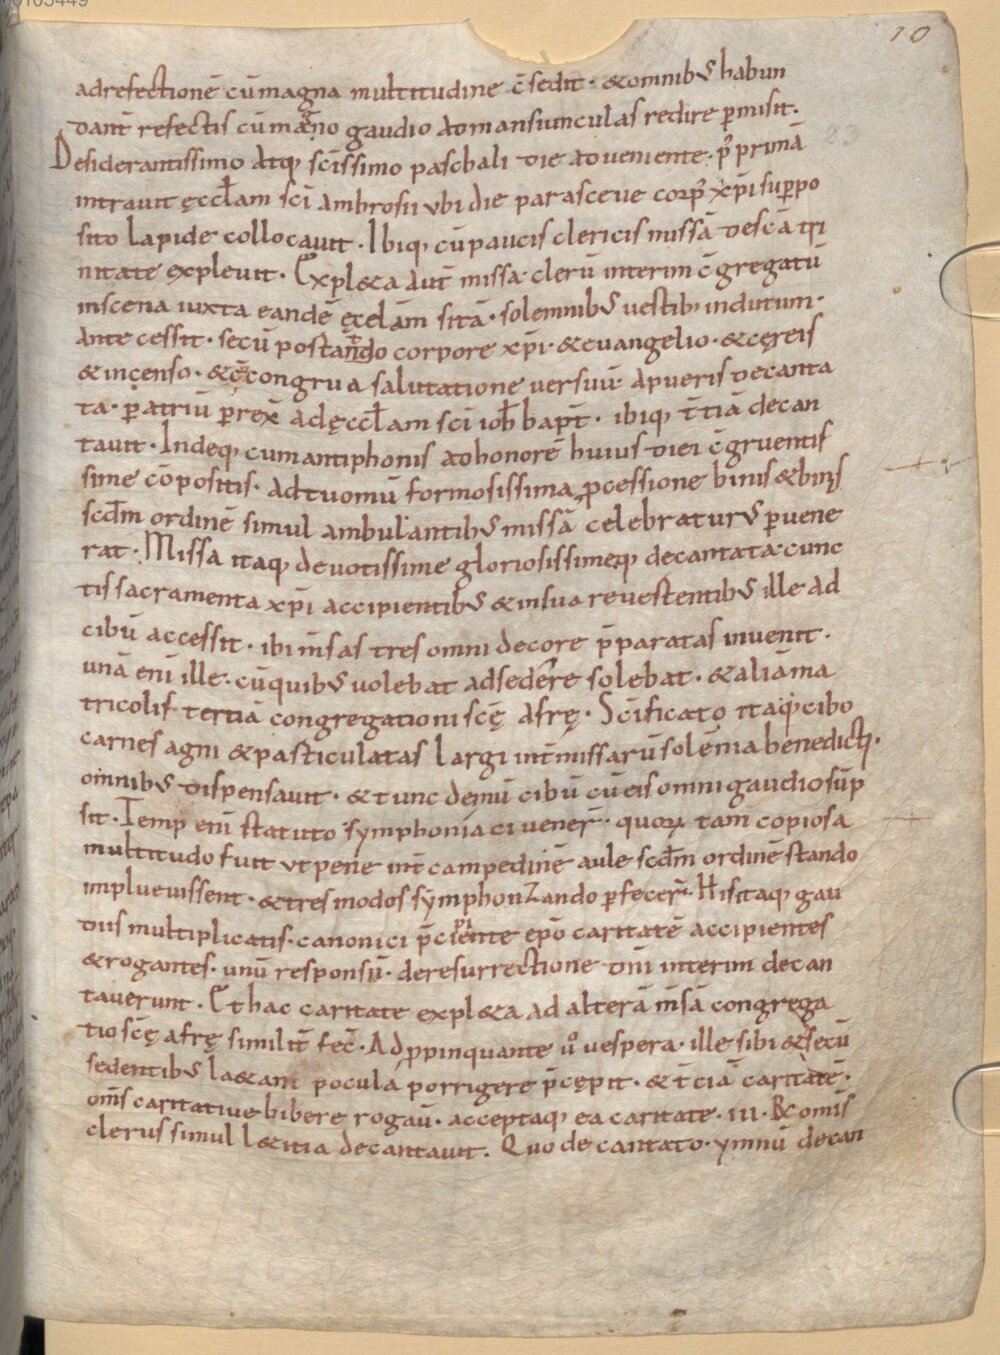 00105449
10
23
adrefectionē cūmagna multitudine c̄sedit · &omnibꝰ habun
dant̄ refectis cūmagno gaudio admansiunculas redire ꝑmisit.
Desiderantissimo atq; scīssimo paschali die adveniente · p̄ primā
intravit ęccłam scī ambrosii ubi die parasceve corpꝰ xp̄i suꝑpo
sito lapide collocavit · Ibiq; cū paucis clericis missā descā tri
nitate explevit · Expl&a aut̄ missa · clerū interim c̄gregatū
inscena iuxta eandē ęcclam sitā · solemnibꝰ vestib; indutum ·
Antecessit · secū portando corpore xp̄i · &evangelio · &cęreis
&incenso · &c̄congrua salutatione versuū apueris decanta
ta · ꝑatriū ꝑrex̄ adęccłam scī ioh̄ bapt̄ · ibiq; t̄tiā decan
tavit · Indeq; cumantiphonis adhonorē huius diei c̄gruentis
sime cōpositis · adduomū formosissima ꝓcessione binis &binis
scd̄m ordinē simul ambulantibꝰ missā celebraturꝰ ꝑvene
rat · Missa itaq; devotissime gloriosissimeq; decantata · cunc
tis sacramenta xp̄i accipientibꝰ &insua revestentibꝰ ille ad
cibū accessit · ibi m̄sas tres omni decore p̄paratas invenit ·
unā enī ille · cūquibꝰ volebat adsedere solebat · &aliā ma
tricolis tertiā congregationi scę̄ afrę · Scīficato itaq; cibo
carnes agni &pasticulatas largi int̄missarū solēnia benedictas ·
omnibꝰ dispensavit · &tunc demū cibū cū eis omni gaudio sūp
sit · Temp enī statuto symphoniaci vener̄ · quoꝝ tam copiosa
multitudo fuit ut pene int̄campedinē aule scd̄m ordinē stando
implevissent · &tres modos symphonizando ꝑfecer̄ · Hisitaq; gau
diis multiplicatis · canonici p̄cipiente ep̄o caritatē accipientes
&rogantes · unū responsū · deresurrectione dn̄i interim decan
taverunt · Et hac caritate expl&a ad alterā m̄sā congrega
tio scę̄ afrę similit̄ fec̄ · Adꝓpinquante ů vespera · ille sibi &secū
sedentibꝰ la&am pocula porrigere p̄cępit · &t̄ciā caritatē ·
om̄s caritative bibere rogav̄ · acceptaq; ea caritate · III · R& omīs
clerus simul l&itia decantavit. Quo decantato · ymnū decan